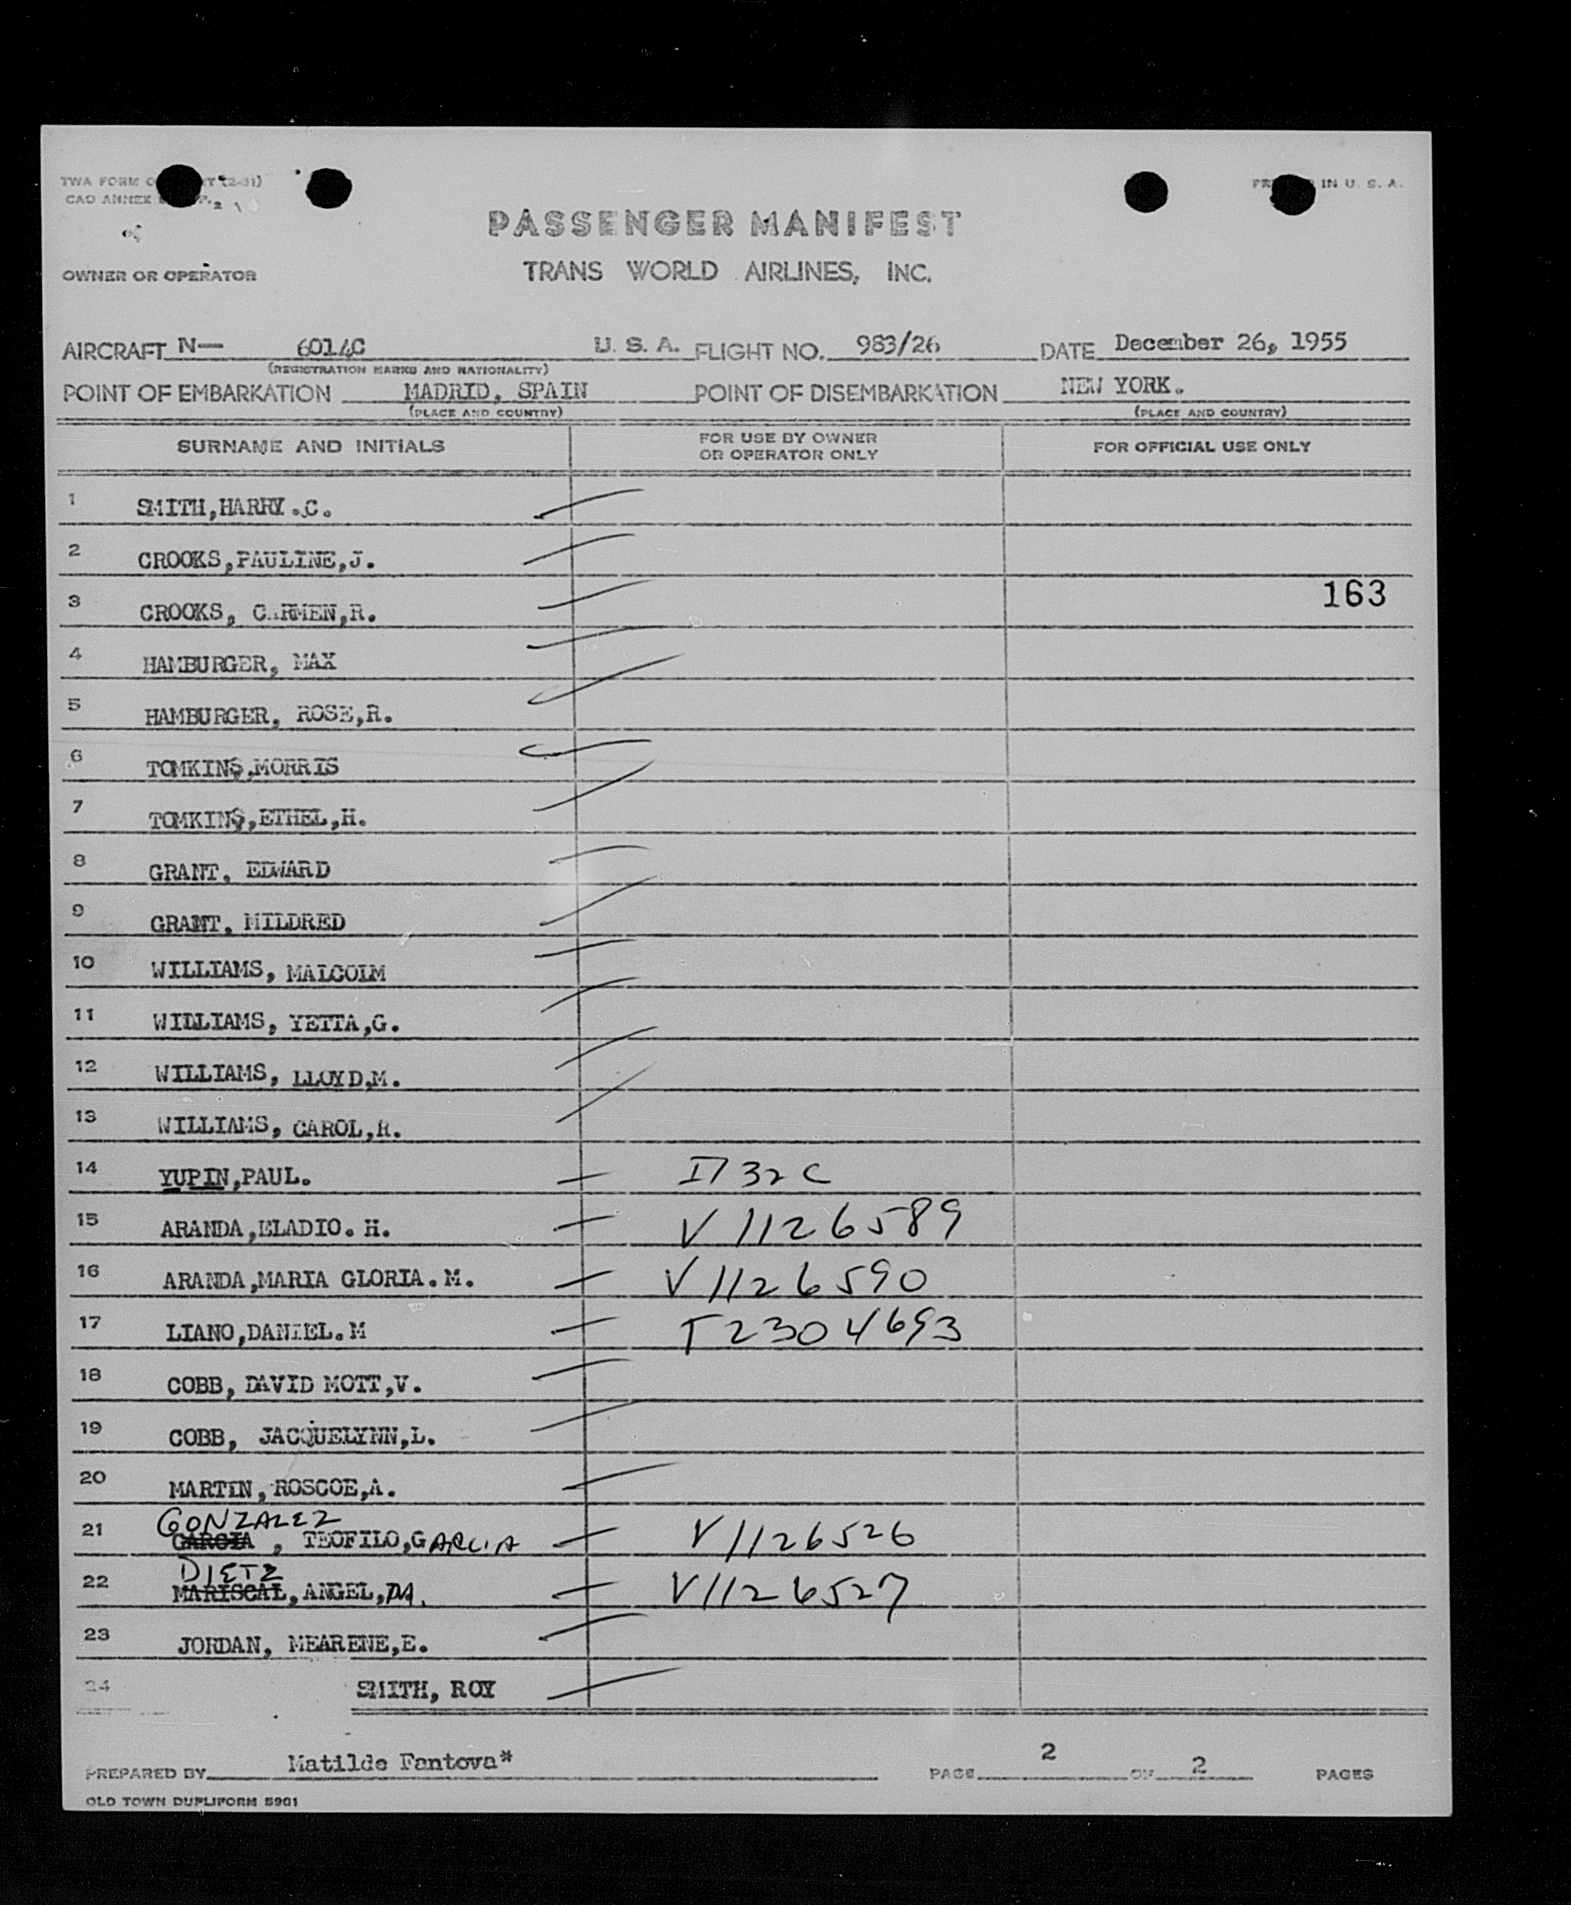 TWA FORM
CAO ANNEX
PASSENGER MANIFEST
IN U. S. A.
OWNER OR OPERATOR
TRANS WORLD AIRLINES, INC.
AIRCRAFT N— 6014C U. S. A. FLIGHT NO. 983/26 DATE December 26, 1955
(REGISTRATION MARKS AND NATIONALITY)
POINT OF EMBARKATION MADRID, SPAIN POINT OF DISEMBARKATION NEW YORK.
(PLACE AND COUNTRY) (PLACE AND COUNTRY)
SURNAME AND INITIALS FOR USE BY OWNER OR OPERATOR ONLY FOR OFFICIAL USE ONLY
1 SMITH,HARRY.C.
2 CROOKS,PAULINE,J.
163
3 CROOKS, CARMEN,R.
4 HAMBURGER, MAX
5 HAMBURGER, ROSE,R.
6 TOMKINS,MORRIS
7 TOMKINS,ETHEL,H.
8 GRANT, EDWARD
9 GRANT, MILDRED
10 WILLIAMS, MALCOLM
11 WILLIAMS, YETTA,G.
12 WILLIAMS, LLOYD,M.
13 WILLIAMS, CAROL,R.
14 YUPIN,PAUL. I732C
15 ARANDA,ELADIO. H. V 1126589
16 ARANDA,MARIA GLORIA. M. V 1126590
17 LIANO,DANIEL.M T2304693
18 COBB, DAVID MOTT,V.
19 COBB, JACQUELYNN,L.
20 MARTIN, ROSCOE,A.
GONZALEZ
21 GARCIA , TEOFILO,GARCIA V 1126526
DIETZ
22 MARISCAL, ANGEL, V 1126527
23 JORDAN, MEARENE,E.
24 SMITH, ROY
PREPARED BY Matilde Fantova* PAGE 2 OF 2 PAGES
OLD TOWN DUPLIFORM 5901